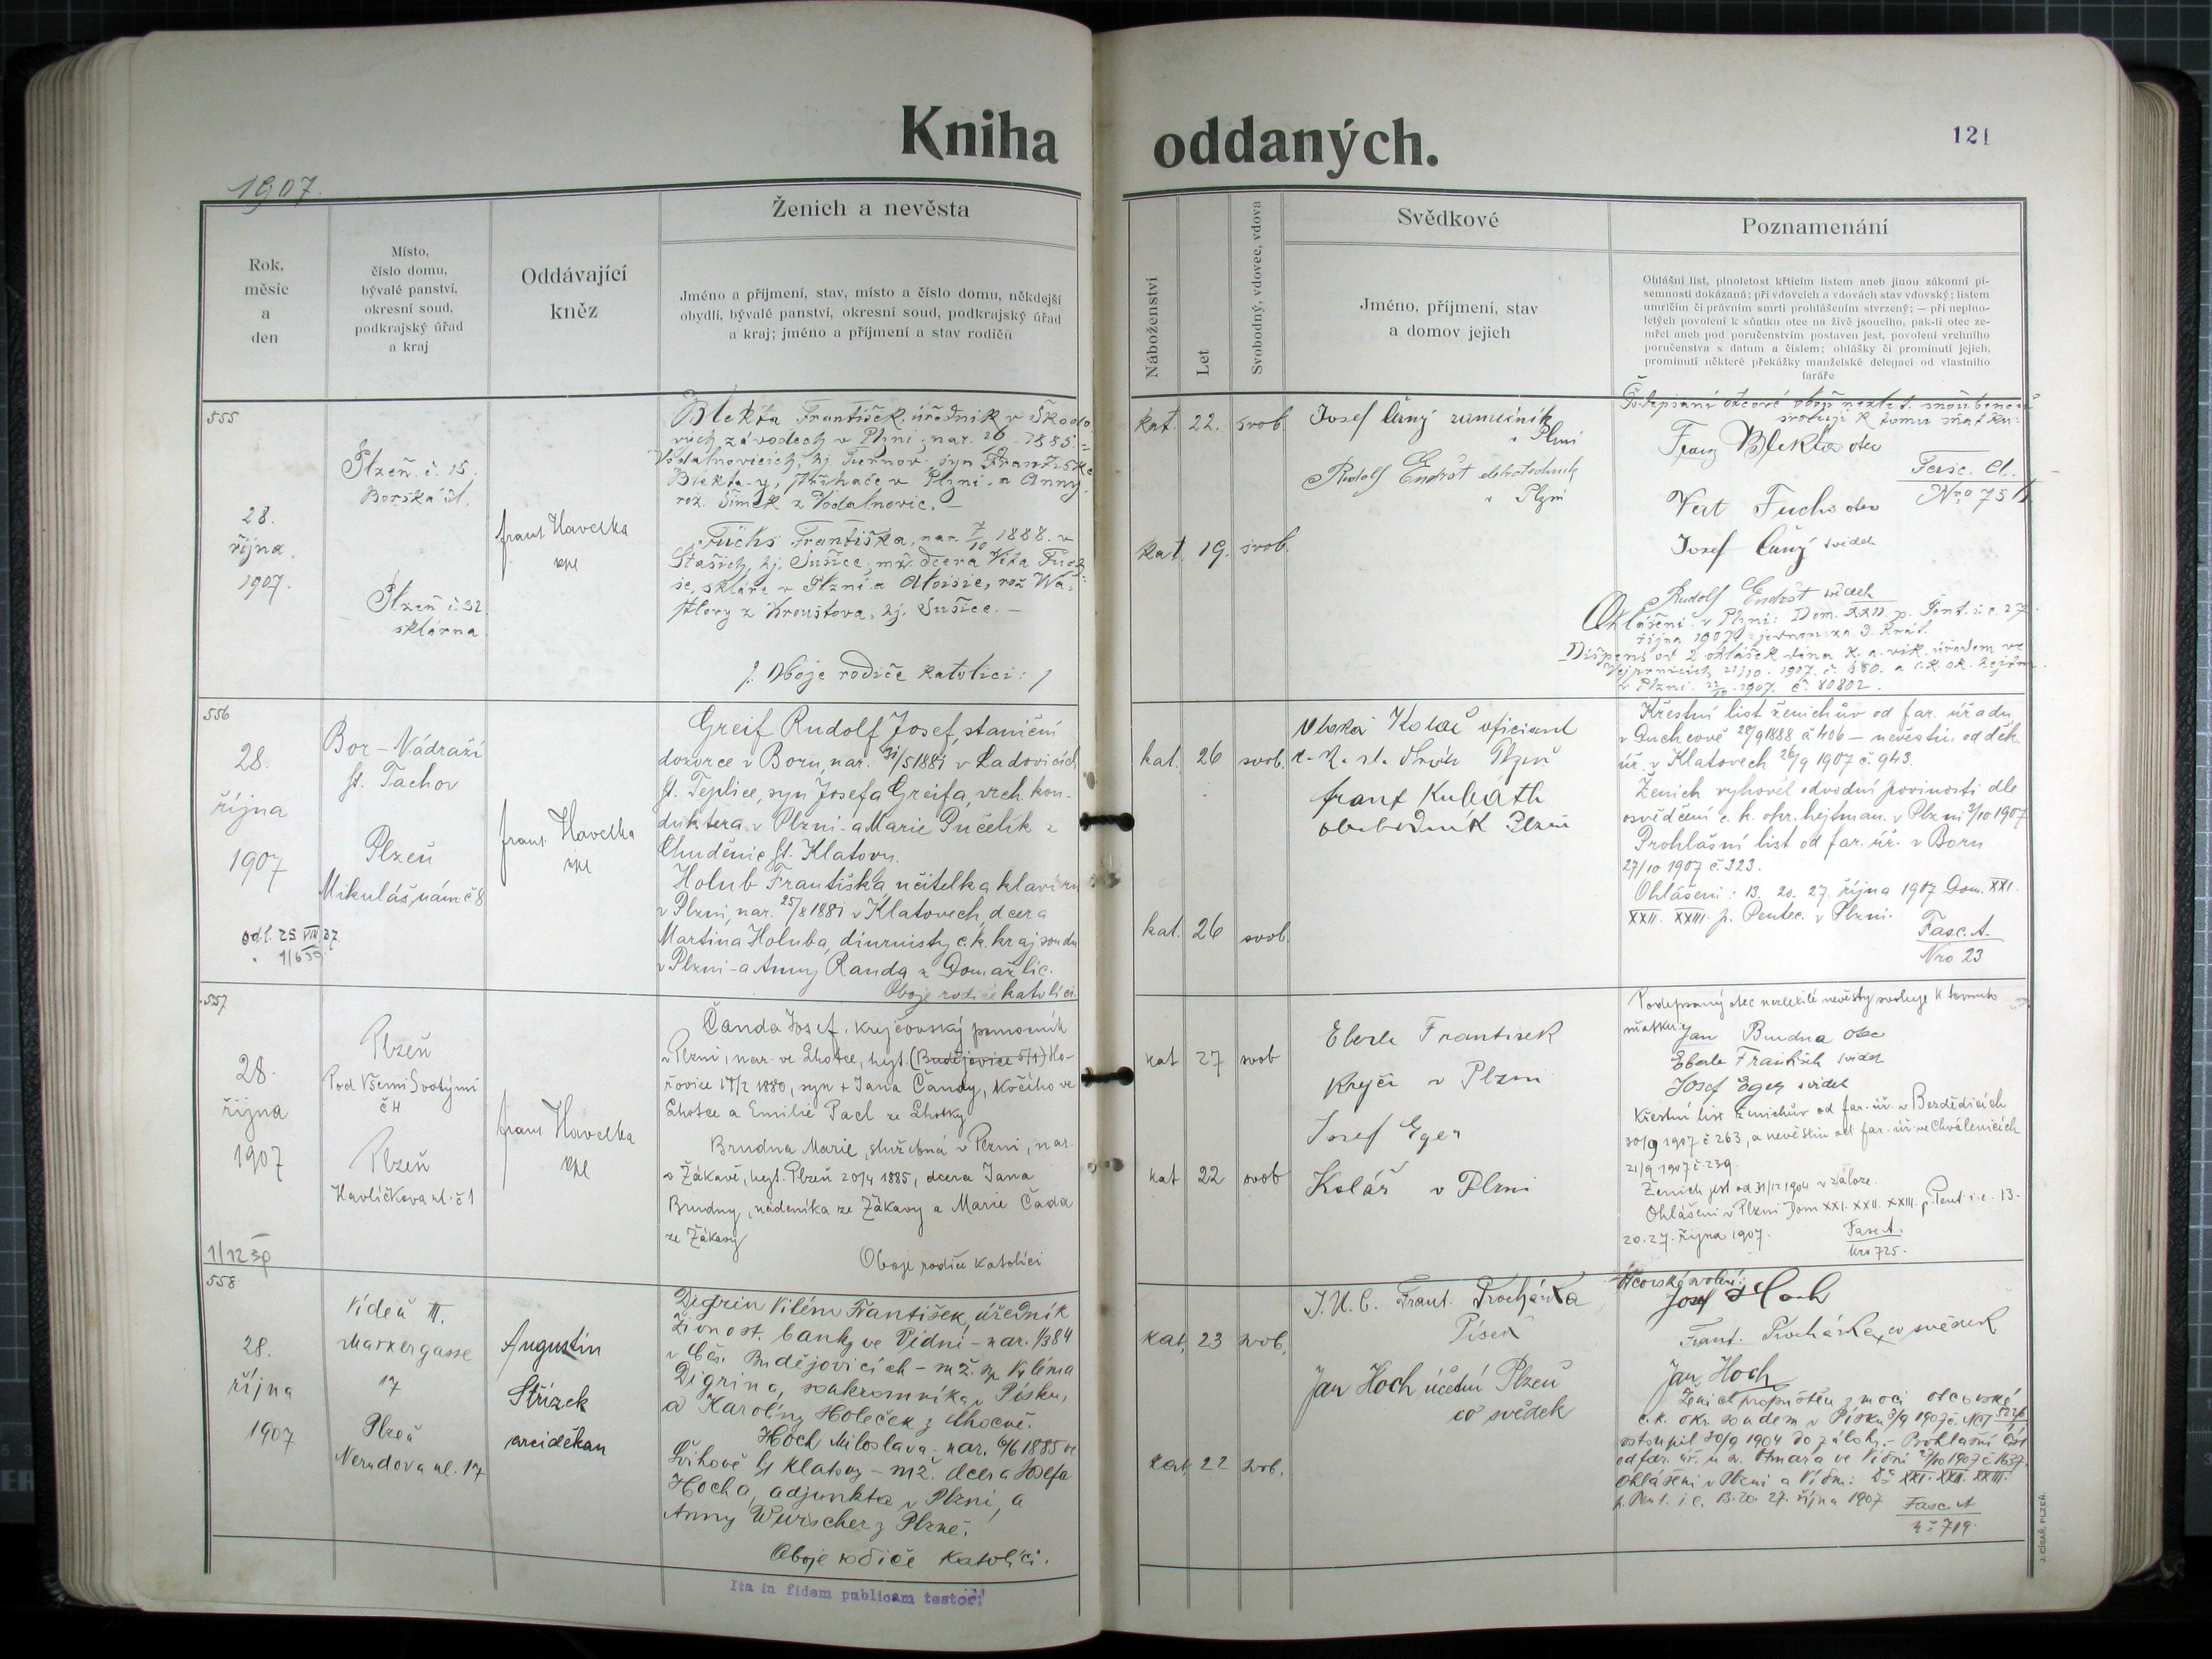 Kniha oddaných.
121
1907.
Rok,
měsíc
a
den
Místo,
číslo domu,
bývalé panství,
okresní soud,
podkrajský úřad
a kraj
Oddávající
kněz
Ženich a nevěsta
Jméno a příjmení, stav, místo a číslo domu, někdejší
obydlí, bývalé panství, okresní soud, podkrajský úřad
a kraj; jméno a příjmení a stav rodičů
Náboženství
Let
Svobodný, vdovec, vdova
Svědkové
Jméno, příjmení, stav
a domov jejich
Poznamenání
Ohlášní list, plnoletost křticím listem aneb jinou zákonní pí-
semností dokázaná; při vdovcích a vdovách stav vdovský; listem
umrlčím či právním smrti prohlášením stvrzený; — při neplno-
letých povolení k sňatku otce na živě jsoucího, pak-li otec ze-
mřel aneb pod poručenstvím postaven jest, povolení vrchního
poručenstva s datum a číslem; ohlášky či prominutí jejich,
prominutí některé překážky manželské delegací od vlastního
faráře
555
28.
října
1907.
Plzeň č. 15.
Borská ul.
Plzeň č. 32
sklárna
Frant. Havelka
Blekta František, úředník v Škodo-
vých závodech v Plzni, nar. 1885 v
Vodalnovicích, hj. Turnov, syn Františka
Blekta-y, v Plzni a Anny
roz. Šimek z Vodalnovic. —
Fuchs Františka, nar. 7/10 1888 v
Staších, hj. Sušice, mž. dcera Víta Fuch-
se, skláře v Plzni a Aloisie, roz. Wa-
z hj. Sušice. —
/: Oboje rodiče katolíci: /
kat. 22. svob.
kat. 19. svob.
Josef zámečník
v Plzni
Rudolf Endršt elektrotechnik
v Plzni
Podepsaní otcové obojí nezlet. snoubenců
svolují k tomu sňatku:
Franz Blekta otec
Fasc. A.
Nro 751
Veit Fuchs otec
Josef svědek
Rudolf Endršt svědek
Ohlášení v Plzni: Dom. XXIII. p. Pent. i. e. 27.
října 1907 jednou za 3. krát.
Dispens od 2 ohlášek dána
21/10. 1907. a c. k. ok. hejtm.
v Plzni 1907. č. 80802.
556
28.
října
1907
odl. 25 VIII 37
1/6 39
Bor - Nádraží
ht. Tachov
Plzeň
Mikuláš. nám č 8
Frant. Havelka
Greif Rudolf Josef, staniční
dozorce v Boru, nar. 31/5 1881 v Ladovicích
ht. Teplice, syn Josefa Greifa, vrch. kon-
duktera v Plzni - a Marie Pučelík z
Chudenic ht. Klatovy.
Holub Františka, učitelka klavíru
v Plzni, nar. 25/8 1881 v Klatovech, dcera
Martina Holuba, diurnisty c. k. kraj soudu
v Plzni - a Anny Randa z Domažlic.
Oboje rodiče katolíci.
kat. 26 svob.
kat. 26 svob.
Kolář oficiant
c. k. st. drah Plzeň
Frant Kubáth
obchodník Plzeň
Křestní list ženichův od far. úřadu
v Duchcově 28/9 1888 č 406 — nevěstin od děk.
úř. v Klatovech 26/9 1907 č. 943.
Ženich vyhověl odvodní povinosti dle
osvědčení c. k. okr. hejtman. v Plzni 3/10 1907
Prohlášní list od far. úř. v Boru
27/10 1907 č. 323.
Ohlášeni: 13. 20. 27. října 1907 Dom. XXI.
XXII. XXIII. p. Pentec. v Plzni.
Fasc. A.
Nro 23
557
28.
října
1907
1/12 39
Plzeň
Pod Všemi Svatými
č 4
Plzeň
Havlíčkova ul. č 1
Frant Havelka
Čanda Josef, krejčovský pomocník
v Plzni, nar. ve Lhotce, hejt. (Budějovice) Ho-
řovice 17/2 1880, syn + Jana Čandy, kočího ve
Lhotce a Emilie Pacl ze Lhotky
Brudna Marie, služebná v Plzni, nar.
v Žákavě, hejt. Plzeň 20/4 1885, dcera Jana
Brudny, nádeníka ze Žákavy a Marie Čada
ze Žákavy
Oboje rodiče katolíci
kat 27 svob
kat 22 svob
Eberle František
Krejčí v Plzni
Josef Eger
Kolář v Plzni
Podepsaný otec nezletilé nevěsty svoluje k tomuto
sňatku: Jan Brudna otec
Eberle František svědek
Josef Eger svědek
Křestní list ženichův od far. úř. v Bezdědicích
30/9 1907 č 263, a nevěstin od far. úř. ve Chválenicích
21/9 1907 č. 239.
Ženich jest od 31/12 1904 v záloze.
Ohlášeni v Plzni Dom XXI. XXII. XXIII. p. Pent. i. e. 13.
20. 27. října 1907.
Fasc A.
Nro 725.
558
28.
října
1907
Vídeň III.
Marxergasse
17
Plzeň
Nerudova ul. 17
Augustin
Střízek
arciděkan
Digrin Vilém František, úředník
živnost. banky ve Vídni - nar.
v Čes. Budějovicích - mž. syn Viléma
Digrina, soukromníka v Písku,
a Karoliny Holeček z Chocně.
Hoch Miloslava - nar. 6/6 1885 ve
Švihově ht Klatovy - mž. dcera Josefa
Hocha, adjunkta v Plzni, a
Anny Wurscher z Plzně.
Oboje rodiče katolíci.
kat. 23 svob.
kat. 22 svob.
J. U. C. Frant. Procházka
Písek
Jan Hoch účetní Plzeň
co svědek
Otcovské svolení:
Josef Hoch
Frant. Procházka, co svědek
Jan Hoch
Ženich propuštěn z moci otcovské
c. k. okr. soudem v Písku 3/9 1907
vstoupil 30/9 1904 do zálohy. - Prohlašní list
od far. úř. u sv. Otmara ve Vídni 27/10 1907 č 1637.
Ohlášeni v Plzni a Vídni: XXI. XXII. XXIII.
p. Pent. i. e. 13. 20. 27. října 1907
Fasc A
č 719.
Ita in fidem publicam testor!
J. CÍSAŘ, PLZEŇ.